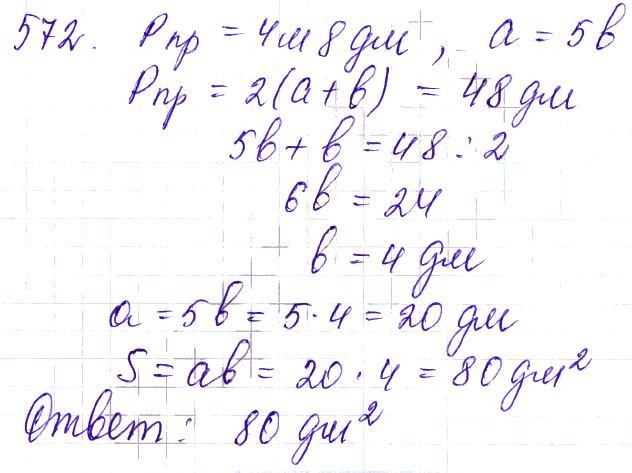 572. Pпр = 4м 8 дм, a = 5b
Pпр = 2(a+b) = 48 дм
5b + b = 48 : 2
6b = 24
b = 4 дм
a = 5b = 5·4 = 20 дм
S = ab = 20·4 = 80 дм²
Ответ: 80 дм²